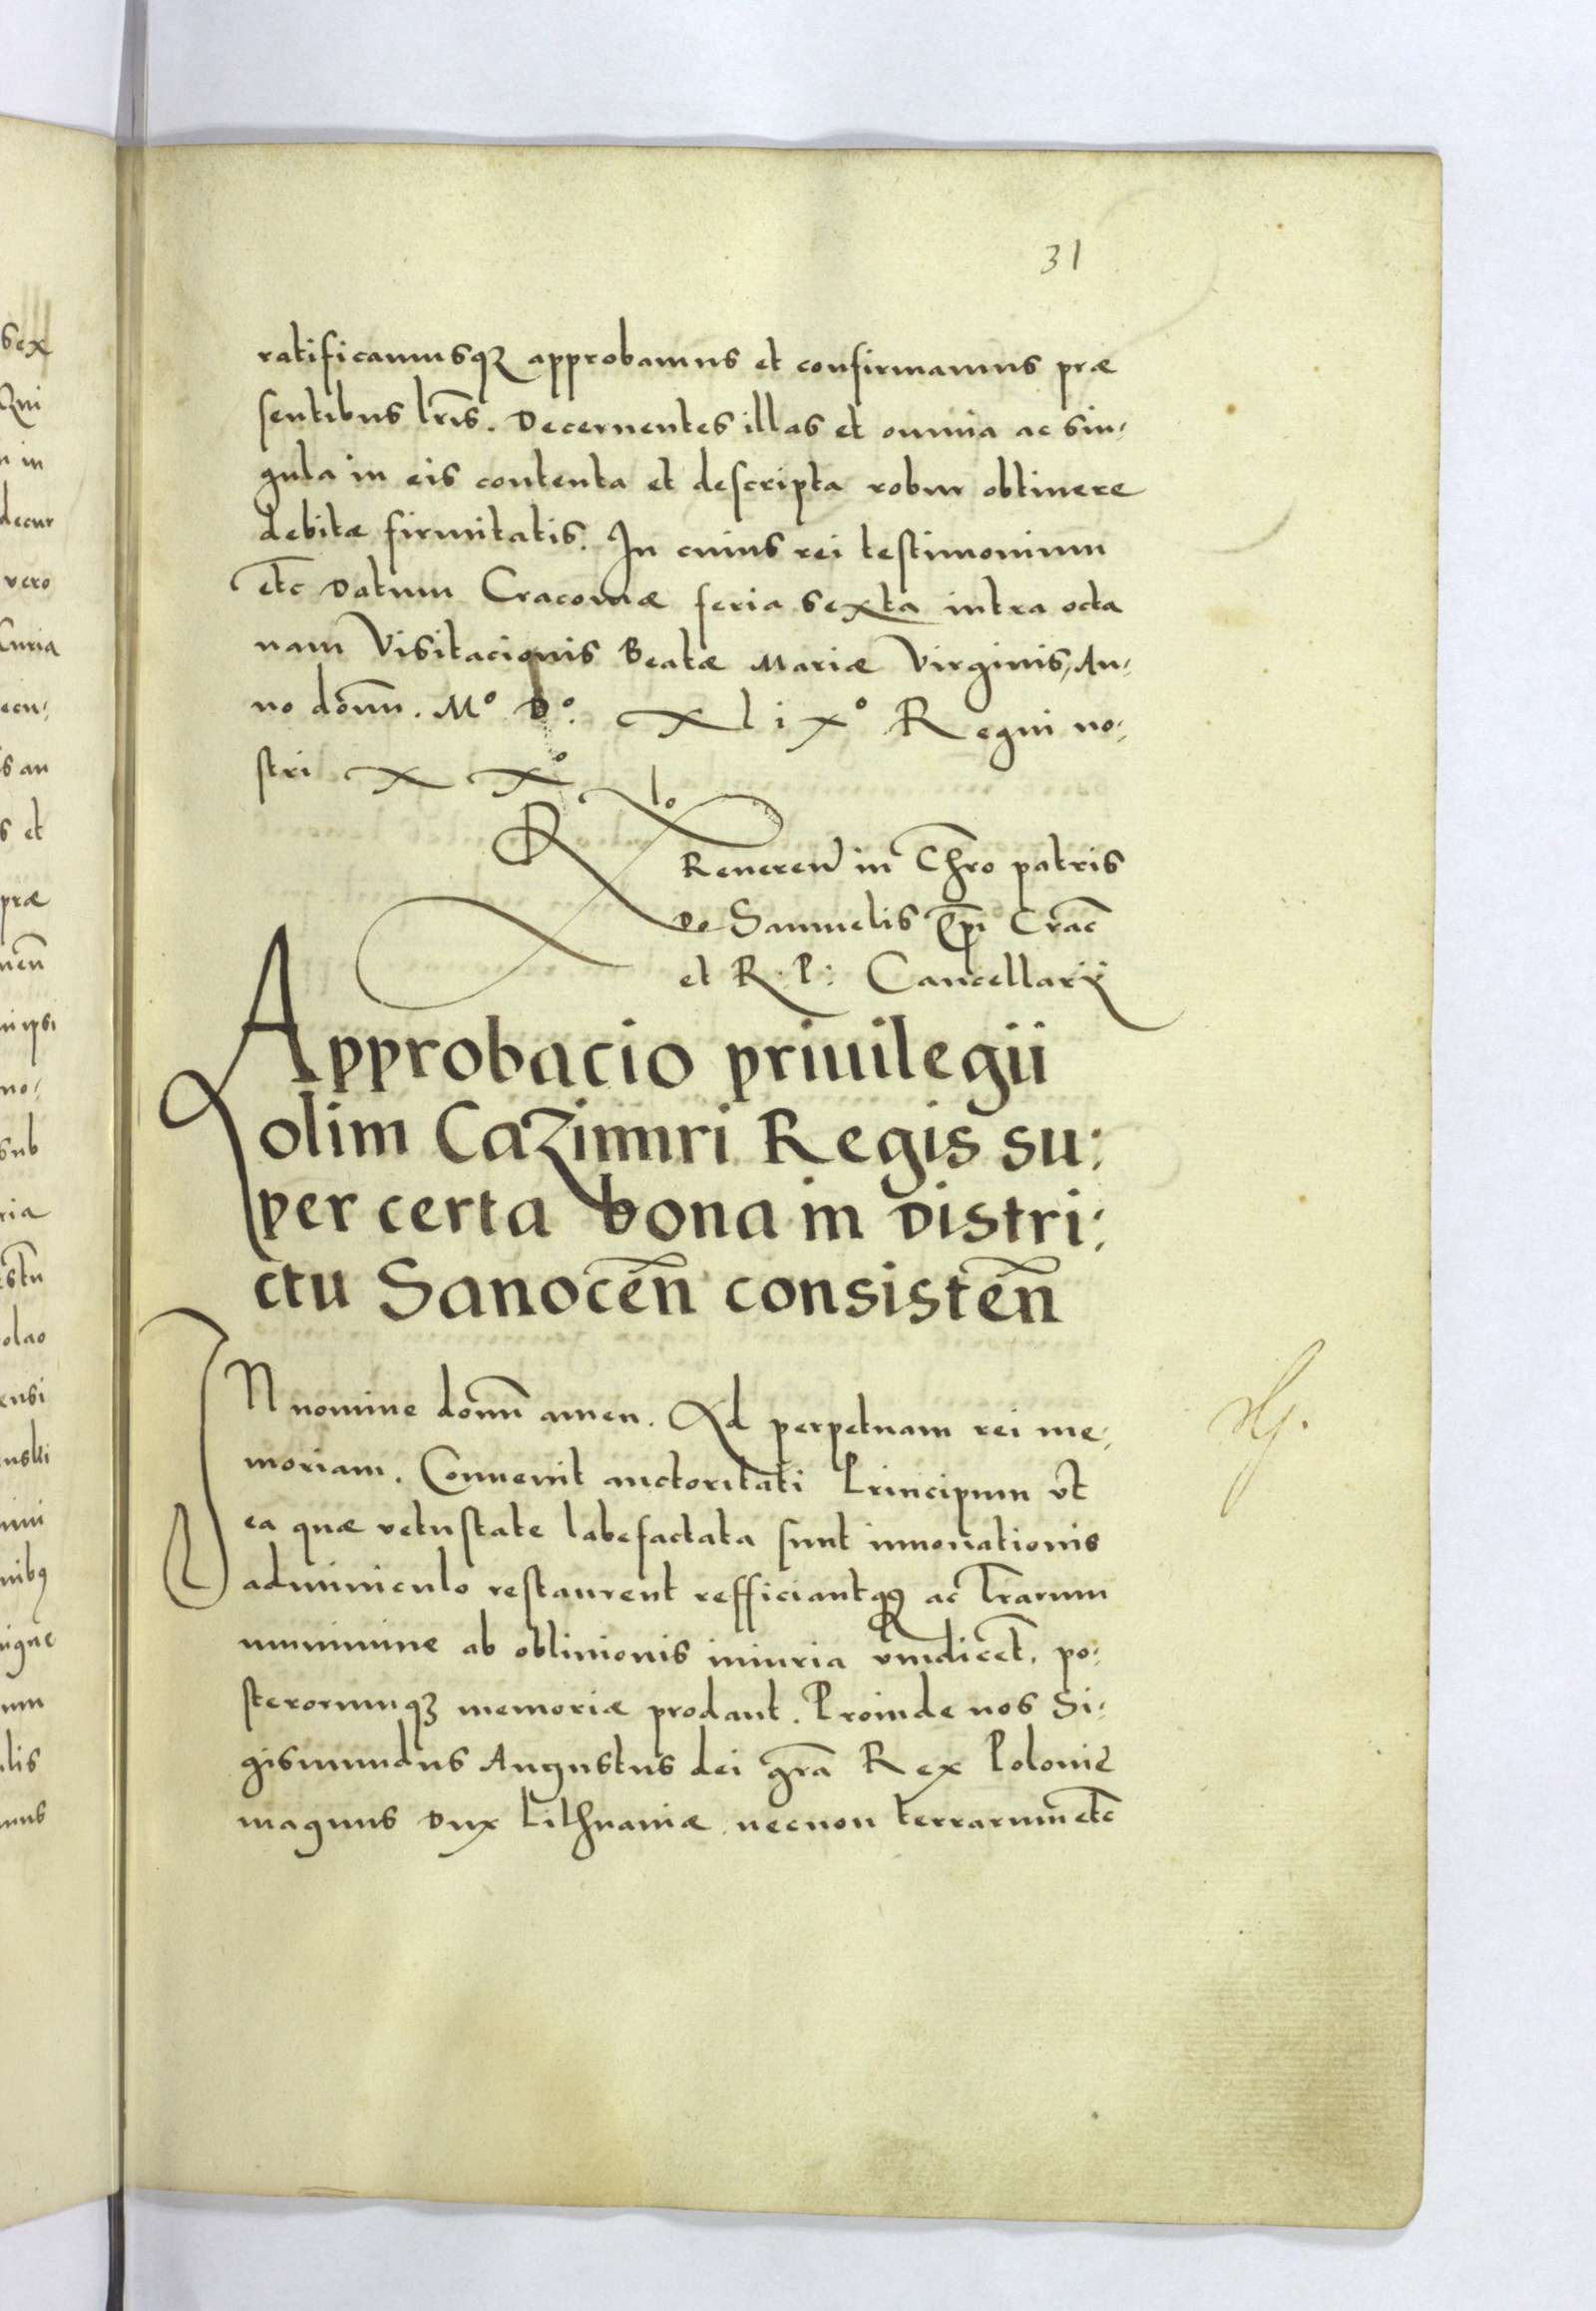 31
ratificamusq₃ approbamus et confirmamus præ
sentibus lr̃is. Decernentes illas et omnia ac sin:
gula in eis contenta et descripta robur obtinere
debitæ firmitatis. In cuius rei testimonium
etc̃ Datum Cracouiæ feria sexta intra octa
uam Visitacionis Beatæ Mariæ Virginis, An:
no domĩ. Mº Dº. xlixº Regni no:
stri xxº
Rlo
Reueren̄ in Chro patris
D° Samuelis Ep̃i Crac̃
et R: P: Cancellarij
Approbacio priuilegii
olim Cazimiri Regis su:
per certa bona in distri:
ctu Sanocen̄ consisten̄
IN nomine domĩ amen. Ad perpetuam rei me:
moriam. Conuenit auctoritati Principum vt
ea quæ vetustate labefactata sunt innouationis
adminiculo restaurent refficiantq₃ ac lr̃arum
munimine ab obliuionis iniuria vindicet̃, po:
sterorumq₃ memoriæ prodant. Proinde nos Si:
gismundus Augustus dei gr̃a Rex Polonie
magnus Dux Lithuaniæ necnon terrarum etc̃
sex
Qui
n in
decur
vero
ecu:
is an
s et
præ
no:
sub
ria
olao
ensi
nibꝰ
um